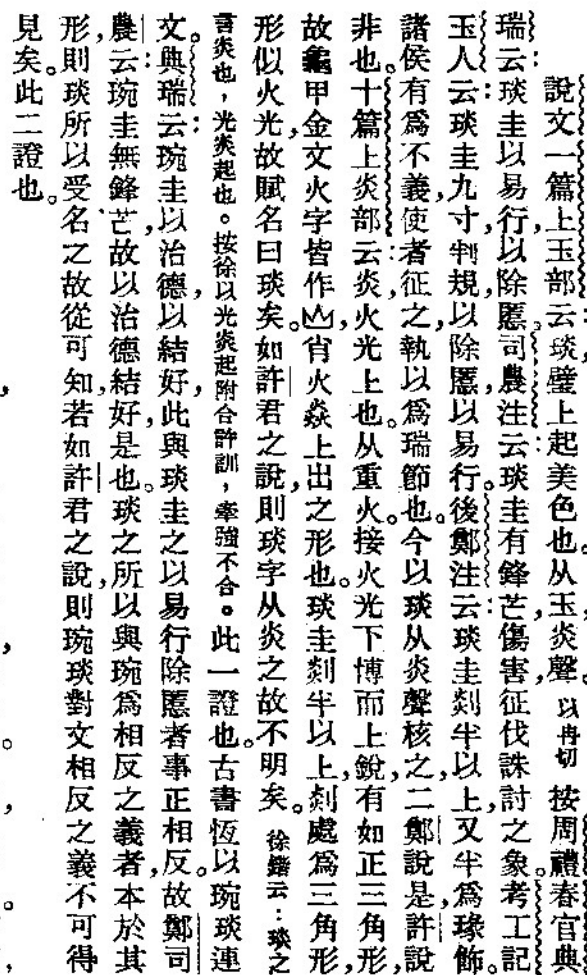 說文一篇上玉部云：琰，璧上起美色也。从玉，炎聲。以冉切 按周禮春官典
瑞云：琰圭以易行，以除慝。司農注云：琰圭有鋒芒，傷害征伐誅討之象。考工記
玉人云：琰圭九寸，判規，以除慝，以易行。後鄭注云：琰圭剡半以上，又半爲瑑飾。
諸侯有爲不義，使者征之，執以爲瑞節也。今以琰从炎聲核之，二鄭說是，許說
非也。十篇上炎部云：炎，火光上也。从重火。接火光下博而上銳，有如正三角形，
故龜甲金文火字皆作，肖火焱上出之形也。琰圭剡半以上，剡處爲三角形，
形似火光，故賦名曰琰矣。如許君之說，則琰字从炎之故不明矣。徐鍇云：琰之
言炎也，光炎起也。按徐以光炎起附合許訓，牽強不合。此一證也。古書恆以琬琰連
文。典瑞云：琬圭以治德，以結好，此與琰圭之以易行除慝者事正相反。故鄭司
農云：琬圭無鋒芒，故以治德結好是也。琰之所以與琬爲相反之義者，本於其
形，則琰所以受名之故從可知，若如許君之說，則琬琰對文相反之義不可得
見矣。此二證也。